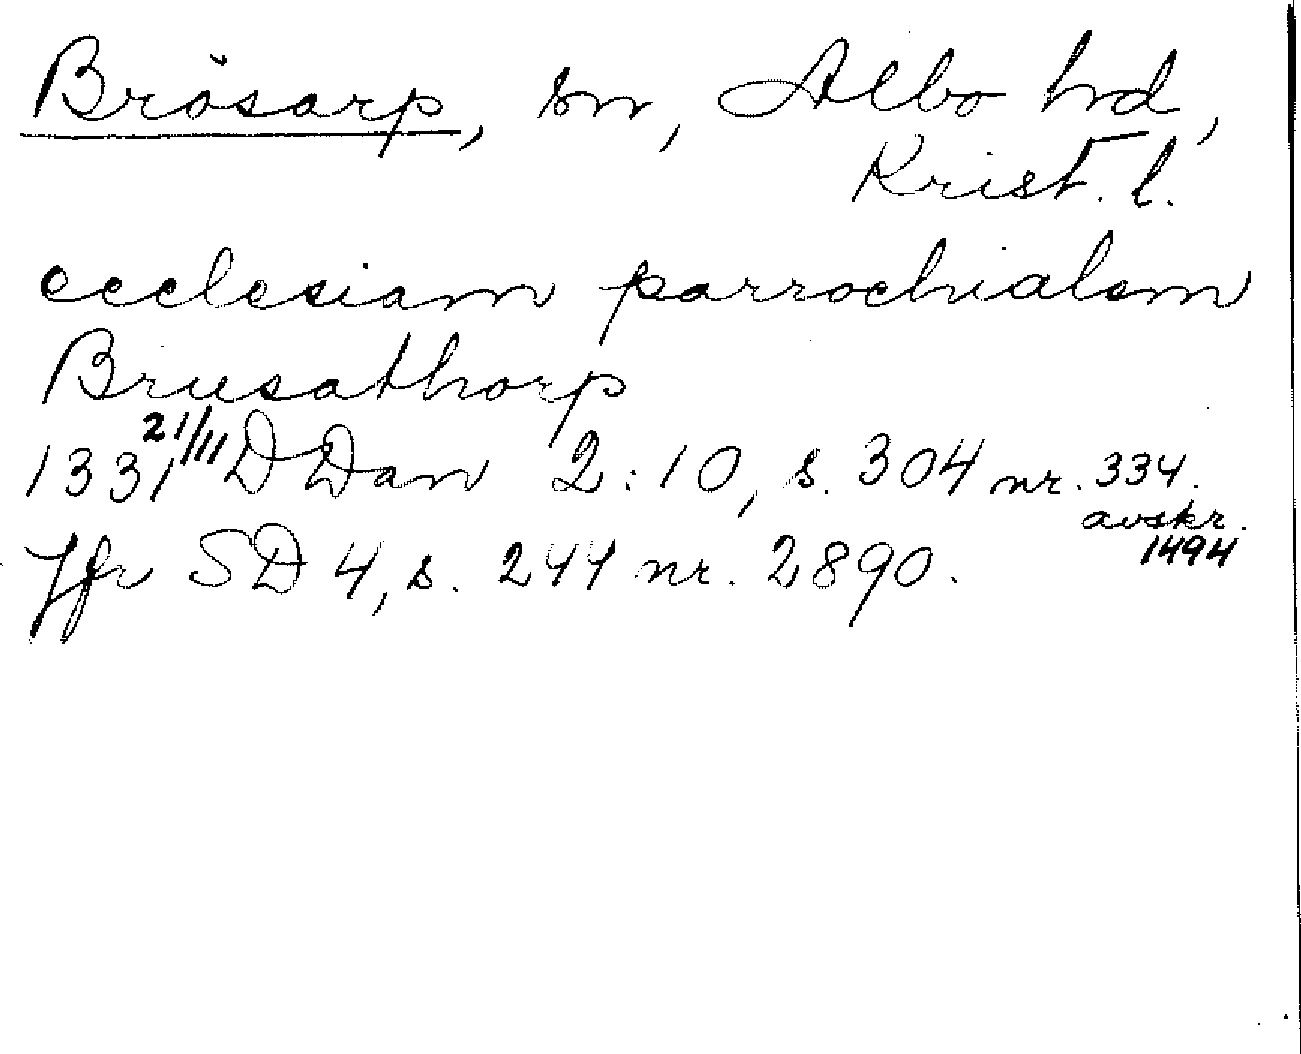 Brösarp, sn, Albo hd,
Krist. l.
ecclesiam parrochialem
Brusathorp
1331 21/11 DDan 2:10, s. 304 nr. 334.
avskr.
1494
Jfr SD 4, s. 244 nr. 2890.